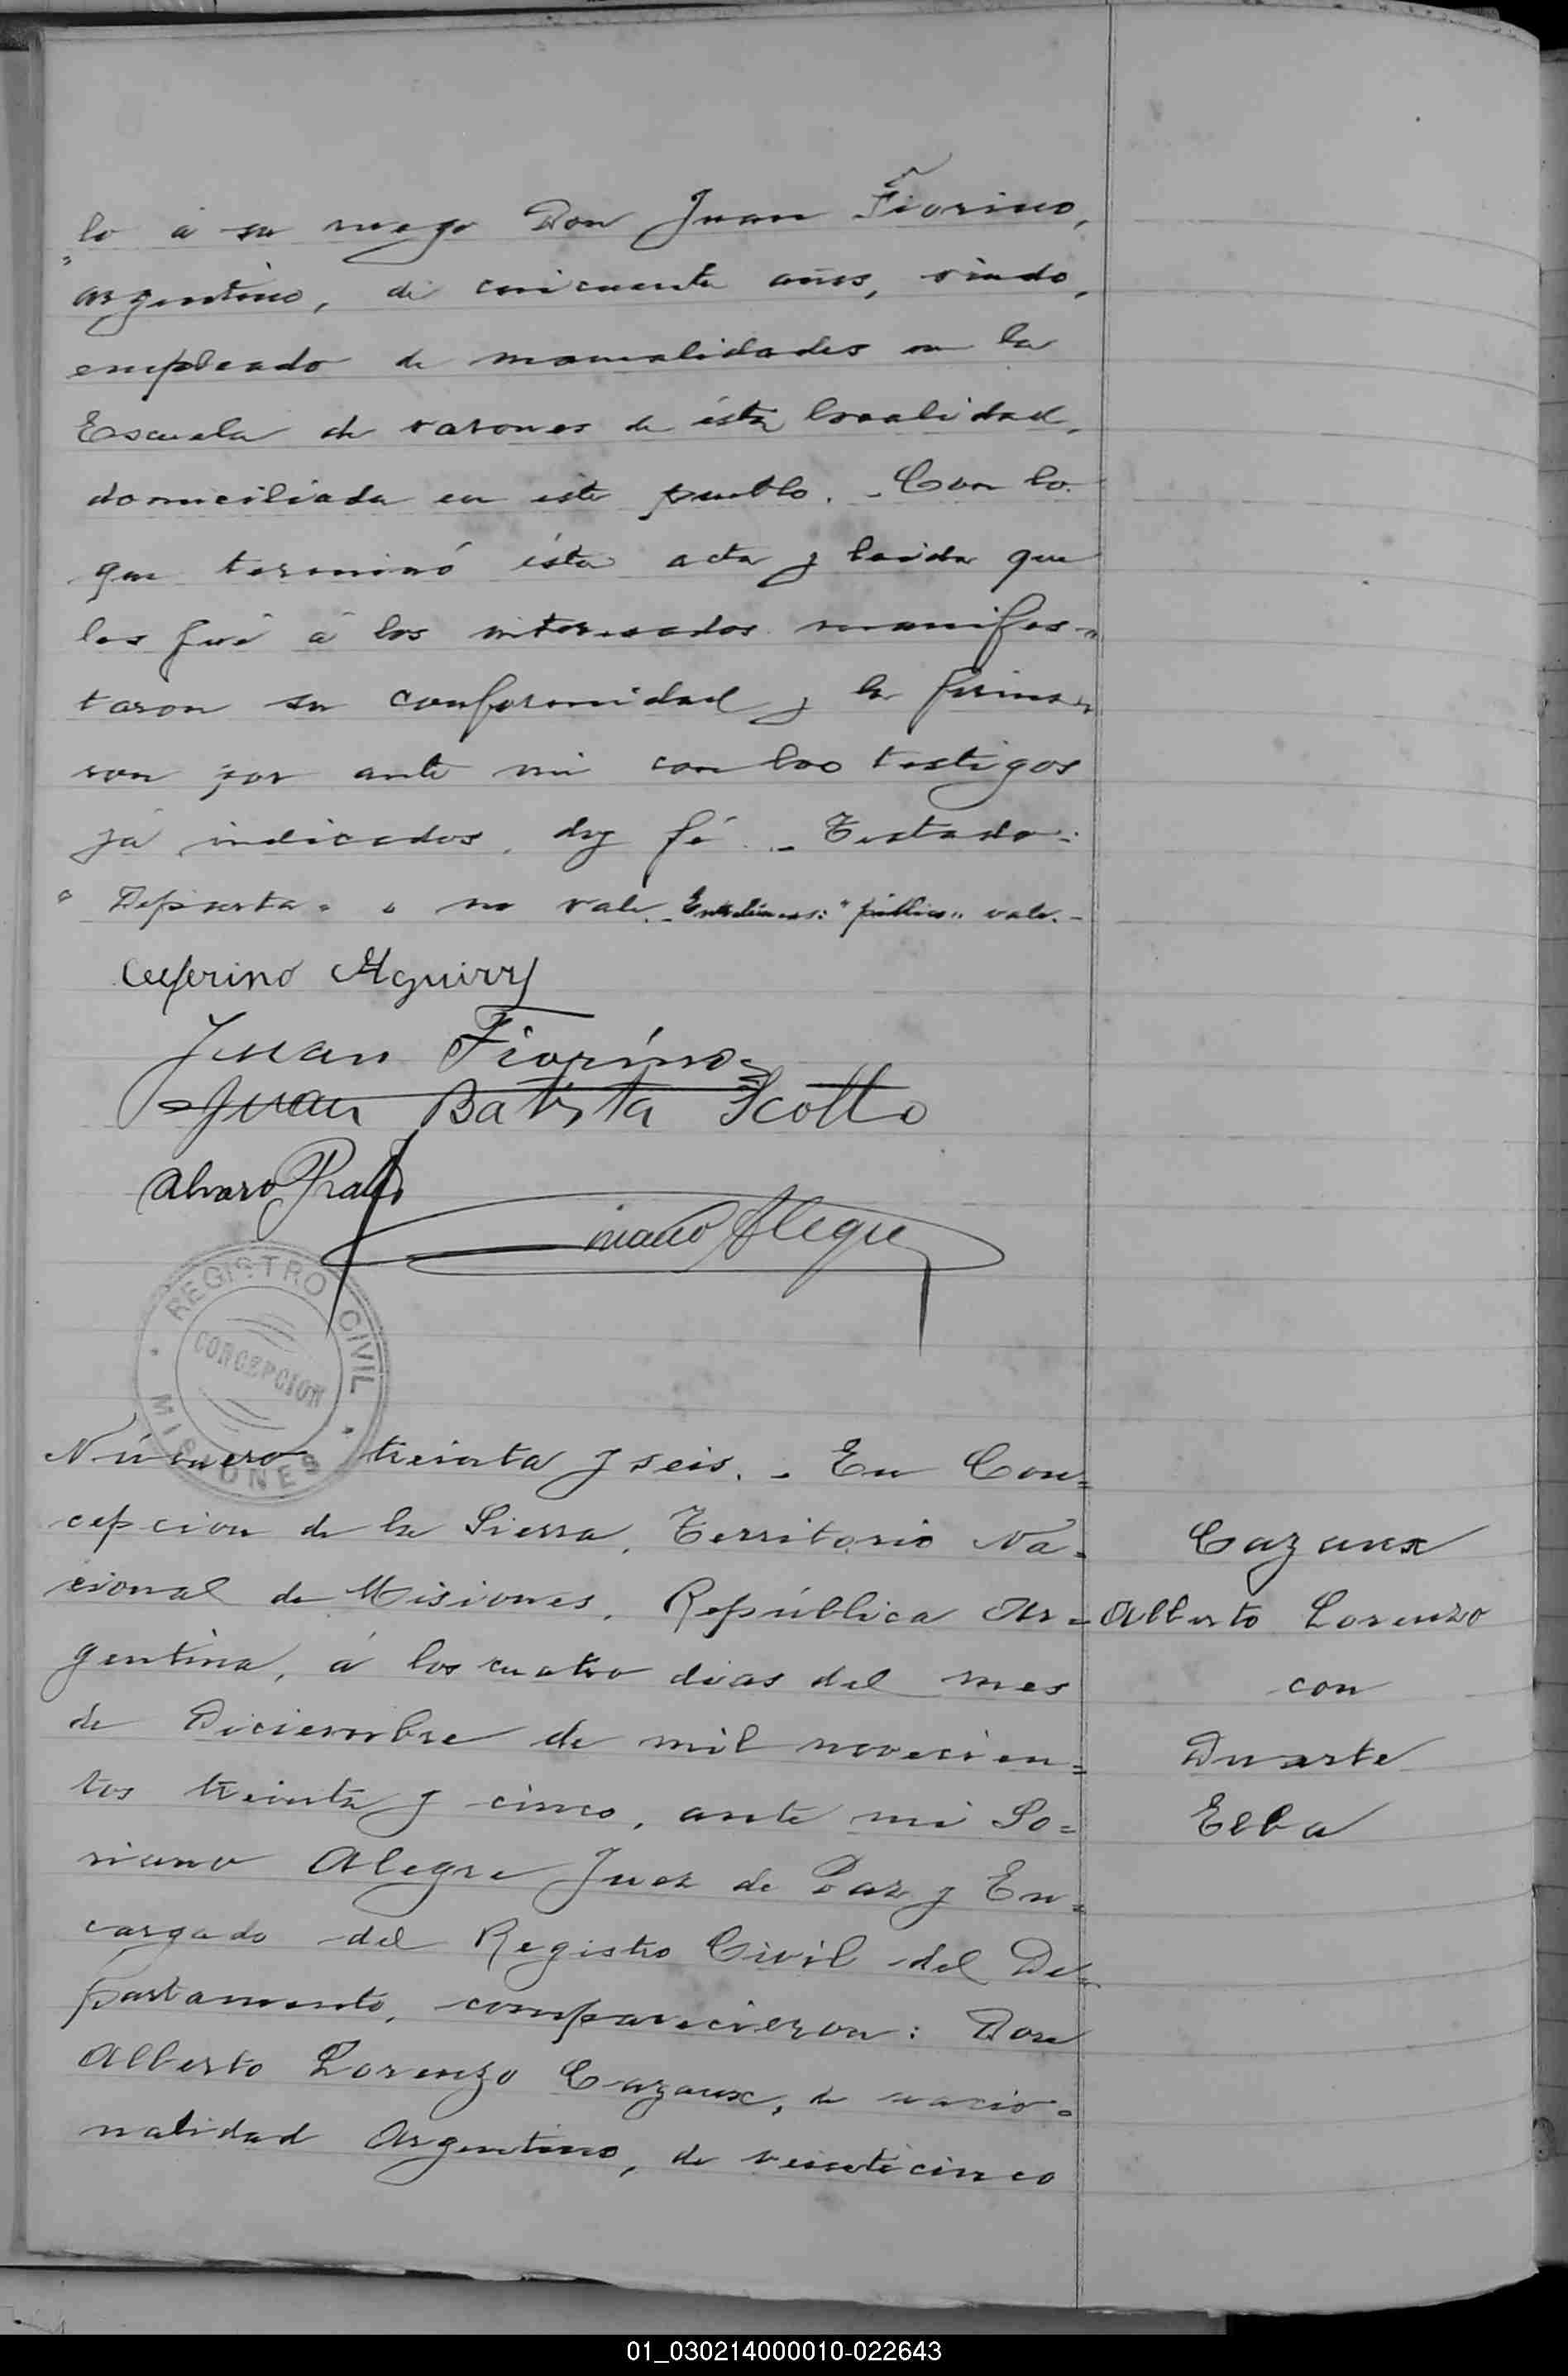 lo á su ruego Don Juan Fiorino,
argentino, de cincuenta años, viudo,
empleado de manualidades en la
Escuela de varones de ésta localidad,
domiciliada en este pueblo. - Con lo
que terminó ésta acta y leida que
les fué á los interesados manifes=
taron su conformidad y la firma=
ron por ante mi con los testigos
ya indicados, doy fé. - Testado:
" Departa " no vale. Entrelineas: "público" vale. -
Ceferino Aguirry
Juan Fiorino
Juan Batista Scotto
Alvaro
Alegre
REGISTRO CIVIL
CONCEPCION
MISIONES
Número treinta y seis. - En Con=
cepcion de la Sierra, Territorio Na=
cional de Misiones, República Ar=
gentina, á los cuatro dias del mes
de Diciembre de mil novecien=
tos treinta y cinco, ante mi So=
riano Alegre Juez de Paz y En=
cargado del Registro Civil del De=
partamento, comparecieron: Don
Alberto Lorenzo Cazaux, de nacio=
nalidad Argentino, de veinticinco
Cazaux
Alberto Lorenzo
con
Duarte
Elba
01_030214000010-022643